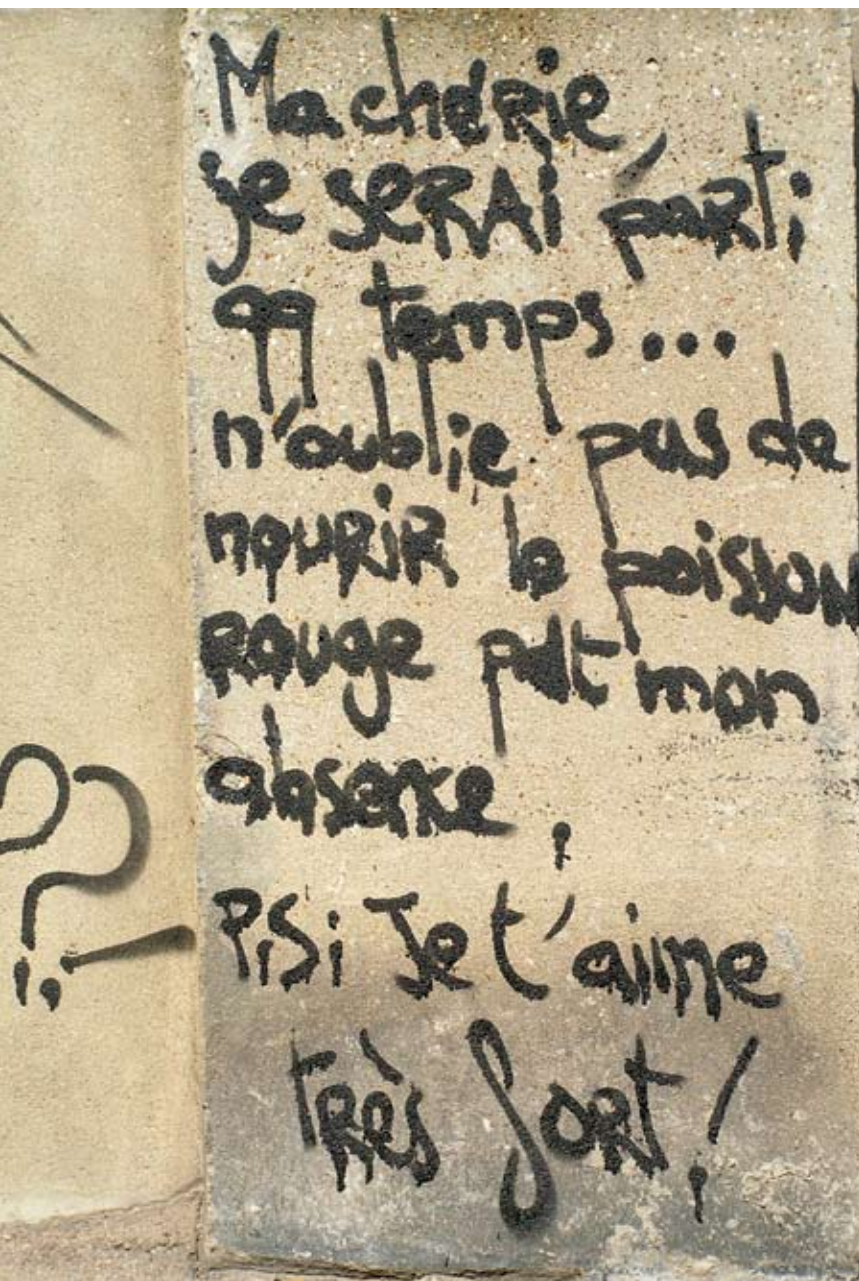 Ma chérie,
je SERAi parti
qq temps...
n'oublie pas de
nouRiR le poissoN
Rouge pdt mon
absence.
P.S: Je t'aime
tRès foRt!
?